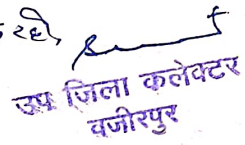 रहे,
उप जिला कलेक्टर
वजीरपुर